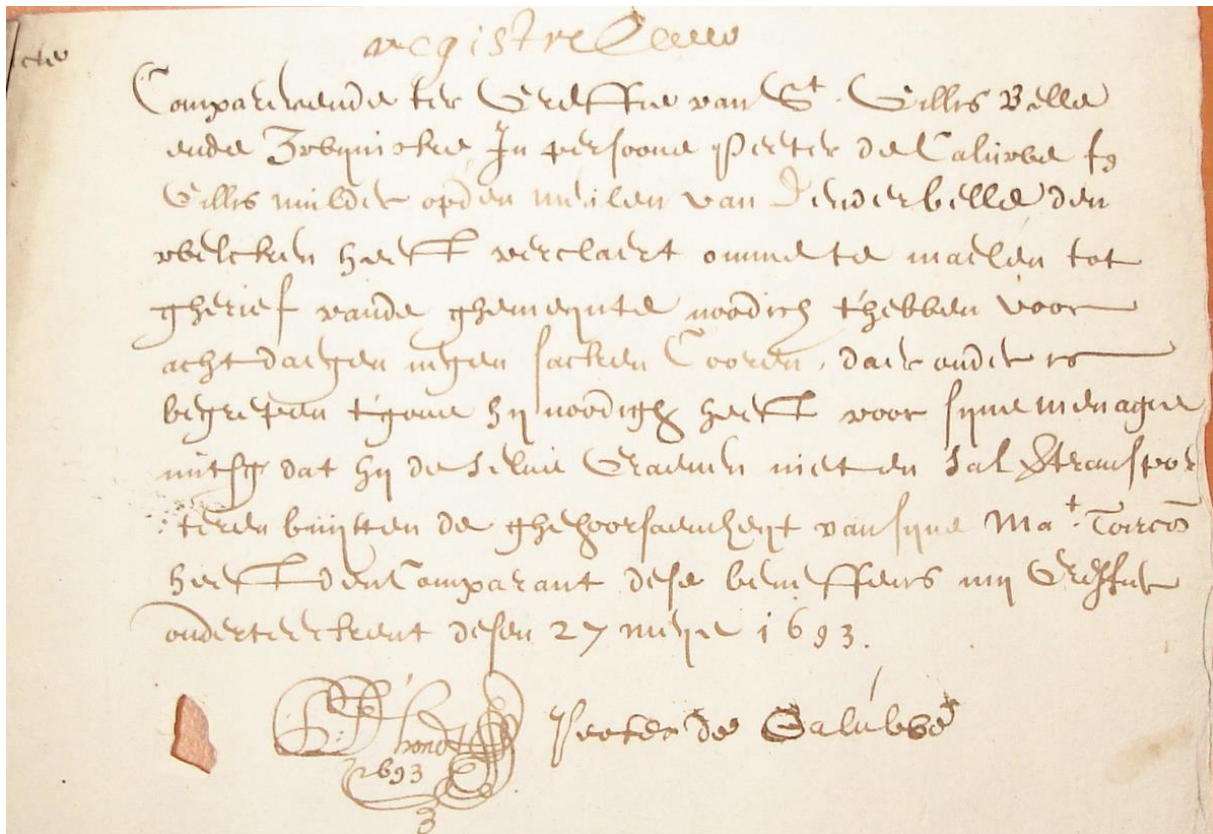 Comparerende ter Greffie van St. Gillis Belle
ende Zwynicke In persoone Peeter de Caluwe fs
Gillis mulder op den meulen van Denderbelle den
welcken heeft verclaert omme te maelen tot
gherief vande ghemeynte noodich t'hebben voor
acht daegen negen sacken Cooren, daer onder
begrepen t'gone hij noodigh heeft voor syne menagie
mits dat hij de selve Graenen niet en sal transpor
teren buijten de ghehoorsaemheyt van syne Mat.
heeft den Comparant dese beneffens mij Greffier
onderteeckent desen 27 meye 1693.
hondt Peeter de Caluwe
1693